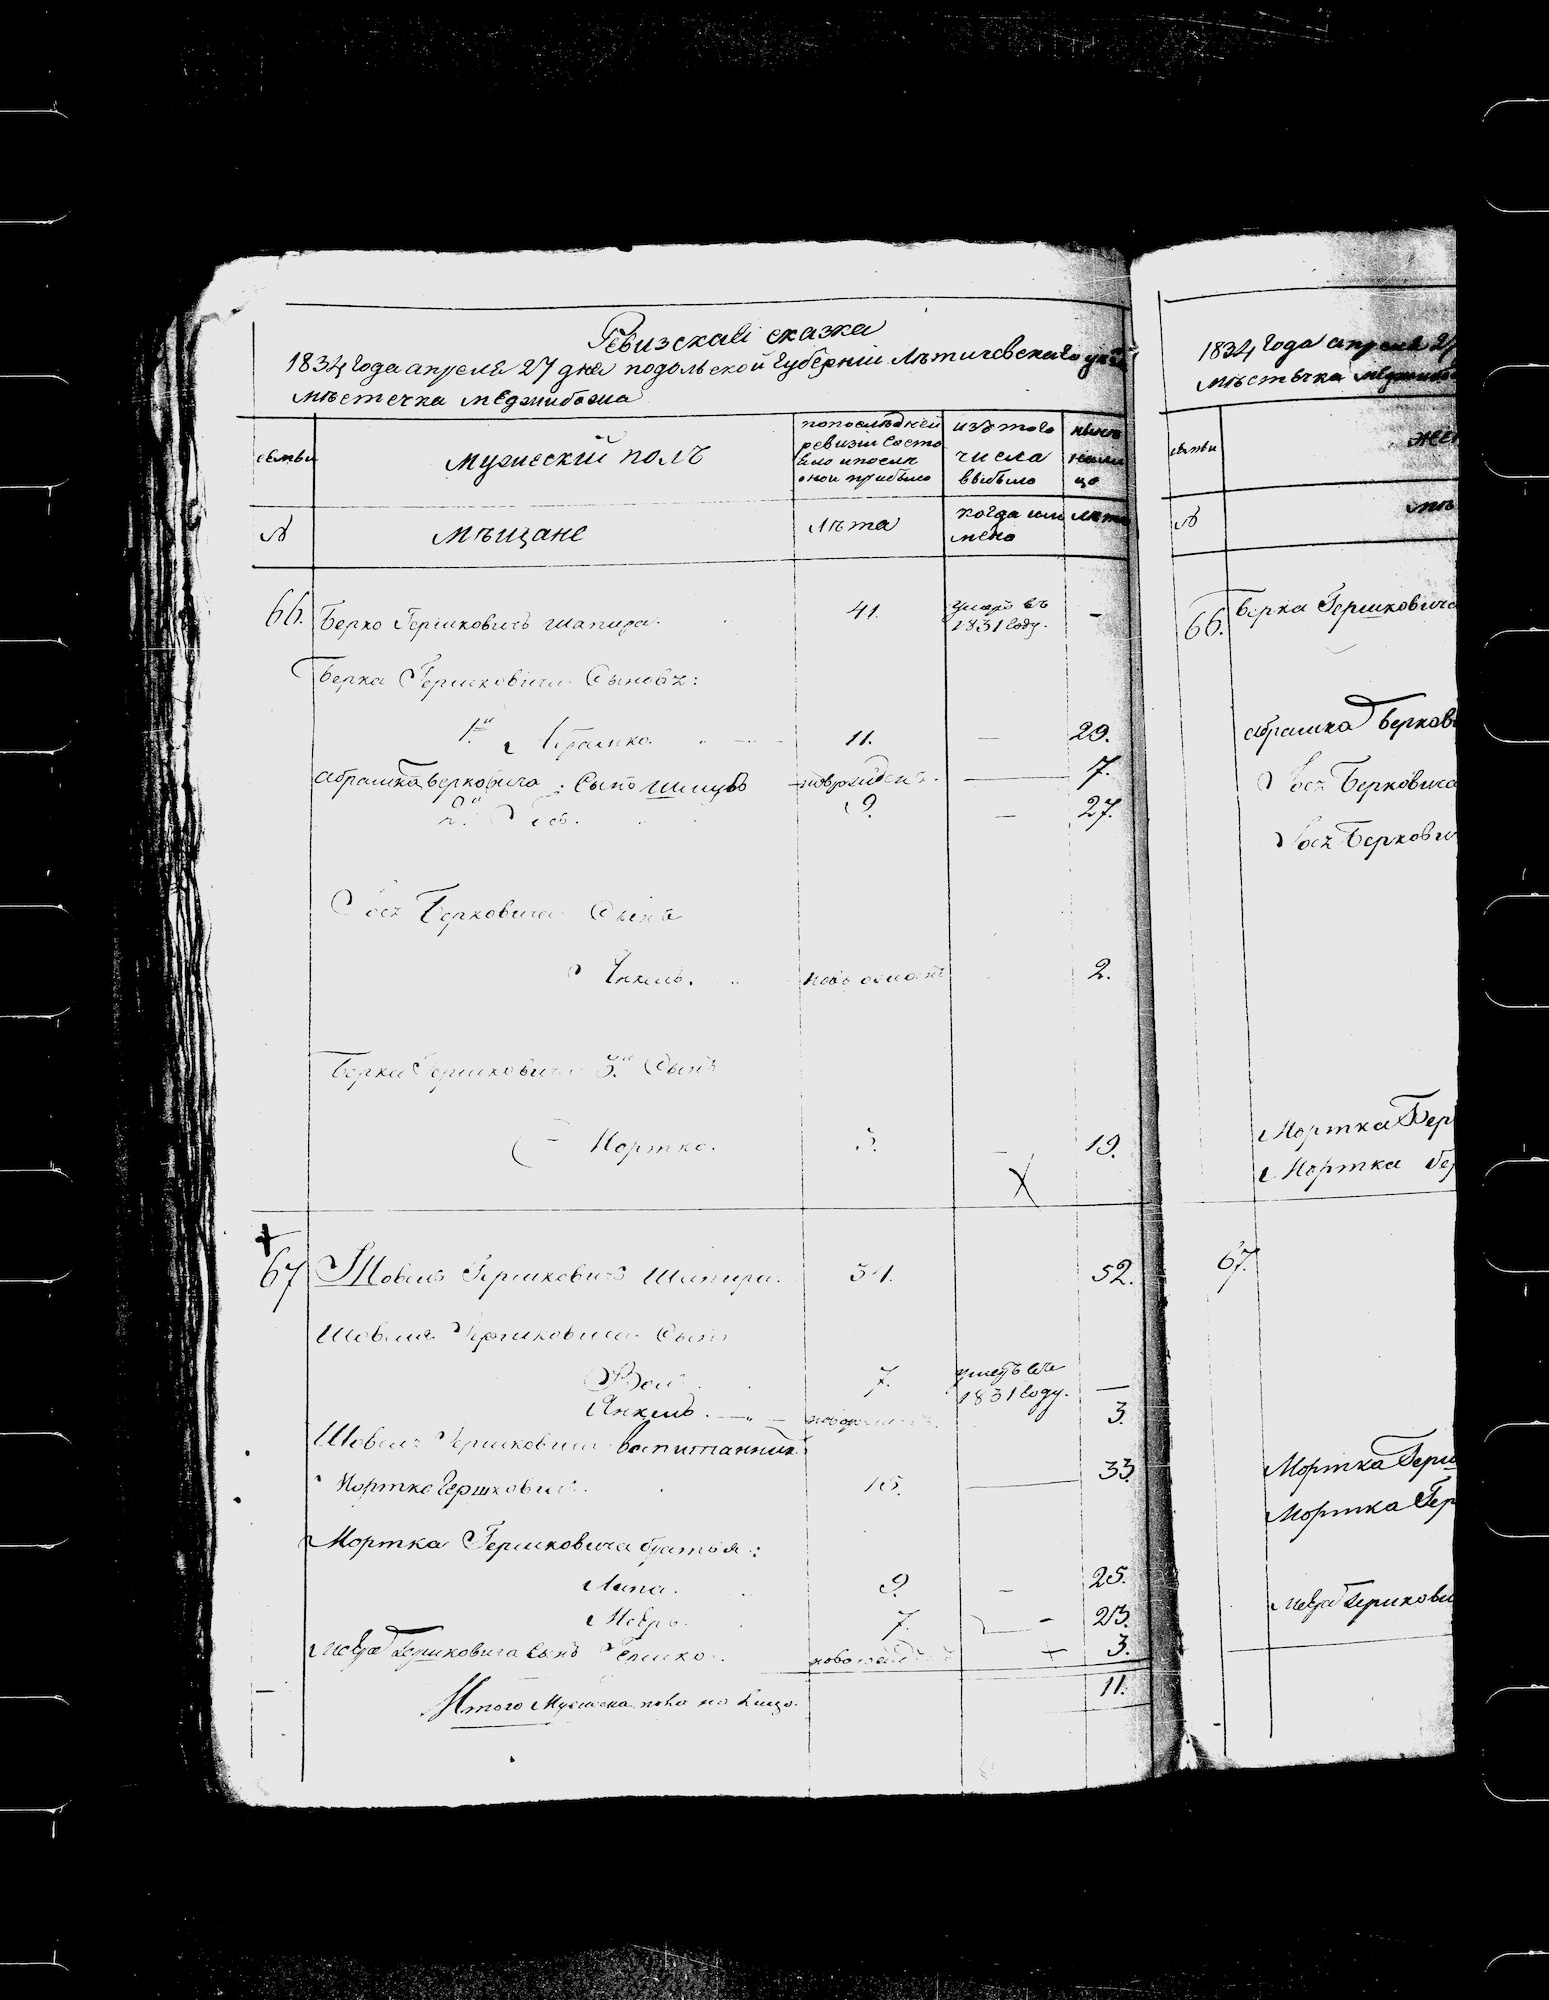 Ревизская сказка
1834 года апреля 27 дня подольской губернии Лѣтичевского уѣзда
мѣстечка меджибожа
семьи
мужеский полъ
по последней
ревизии состо
яло и после
оной прибыло
изъ того
числа
выбыло
нынѣ
на ли
цо
№
мѣщане
лѣта
когда именно
лѣта
66. Берко Гершковичъ шапира. 41. умеръ въ 1831 году. -
Берка Гершковича Сыновья:
1й Абрамко. 11. — 29.
абрашка берковича: Сынъ новорожденъ. — 7.
2й 9. — 27.
Берковича Сынъ
Янкель. 2.
Берка Гершковича 3й Сынъ
Мортко. 3. — 19.
67 Шовель Гершковичъ Шапира. 34. 52.
Шовеля Гершковича Сынъ
7. умеръ въ 1831 году. —
Янкель. — новорожденъ 3.
Шовеля Гершковича воспитанникъ
Мортко Гершковичъ. 33.
Мортка Гершковича братья:
Липа. 9. — 25.
Мееръ. 7. - 23.
Меера Гершковича сынъ Гершко. новорожденъ 3.
Итого Мужеска пола на лицо. 11.
1834 года апреля 27
мѣстечка меджибо
семьи
жен
№
мѣ
66. Берка Гершковича
абрашка Беркови
Берковича
Беркови
Мортка Бер
Мортка бер
67.
Мортка Герш
Мортка Гер
меера Гершкови